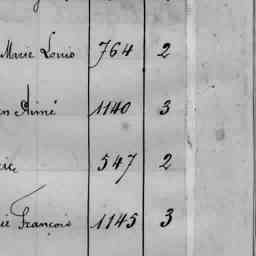 Marie Louis 764 2
Aimé 1140 3
547 2
François 1145 3